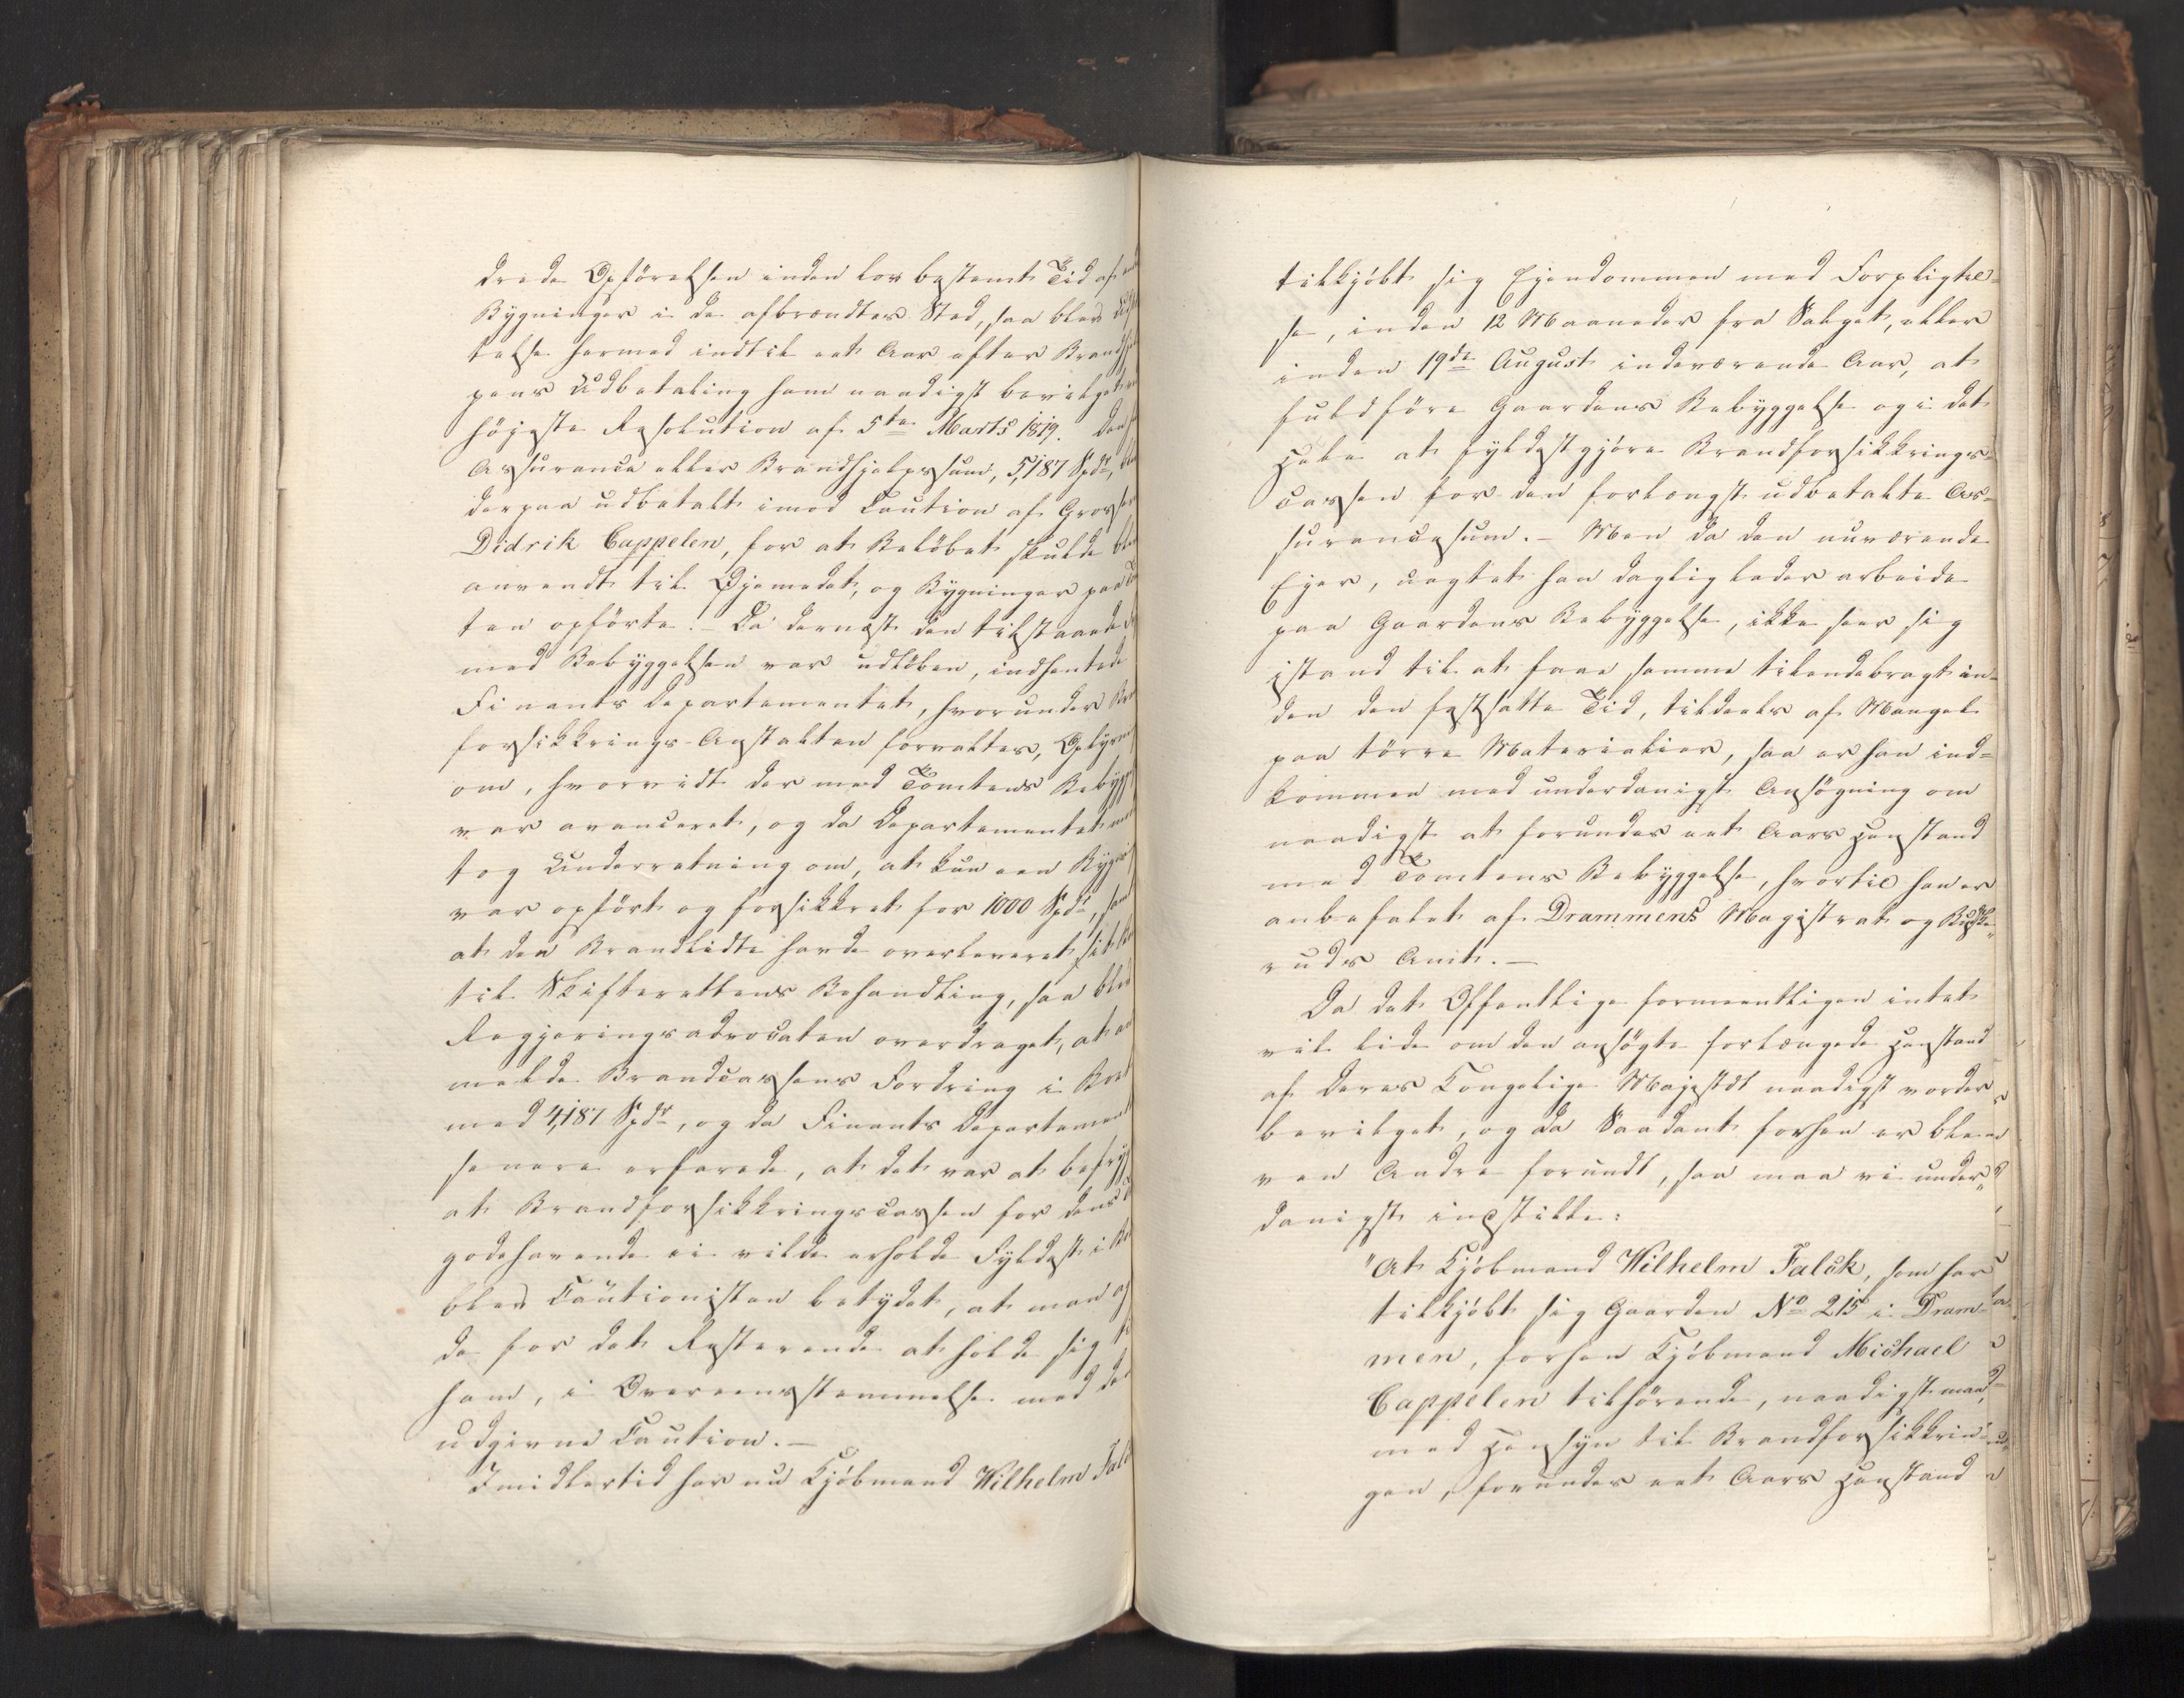 drede Opförelsen inden lov bestemt Tid af
Bygninger i de afbrændtes Sted, saa blev
telse hermed indtil eet Aar efter
pens Udbetaling ham naadigst bevilget
höjeste Resolution af 5te Marts 1819.
Assurance eller Brandhjelpssum, 5,187 Spdr,
derpaa udbetalt imod Caution af
Didrik Cappelen, for at Belöbet skulde
anvendt til Øjemedet, og Bygninger paa
ten opförte. – Da dernæst den tilstaaede
med Bebyggelsen var udlöben, indhentede
Finants Departementet, hvorunder
forsikkrings-Anstalten forvaltes,
om, hvorvidt der med Tomtens
var avanceret, og da Departementet
tog Underretning om, at kun een
var opfört og forsikkret for 1000 Spdr,
at den Brandlidte havde overleveret sit
til Skifterettens Behandling, saa blev
Regjeringsadvocaten overdraget, at
melde Brandcassens Fordring i
med 4,187 Spdr, og da Finants
senere erfarede, at det var at
at Brandforsikkringscassen for dens
godehavende ei vilde erholde Fyldest i
blev Cautionisten betydet, at man
de for det Resterende at holde sig
ham, i Overeensstemmelse med
udgivne Caution. –
Imidlertid har nu Kjöbmand Wilhelm
tilkjöbt sig Ejendommen med Forpligtel=
se, inden 12 Maaneder fra Salget, eller
inden 19de August indeværende Aar, at
fuldföre Gaardens Bebyggelse og i det
Hele at fyldestgjöre Brandforsikkrings=
cassen for den forlængst udbetalte As=
surancesum. – Men da den nuværende
Ejer, uagtet han daglig lader arbeide
paa Gaardens Bebyggelse, ikke seer sig
istand til at faae samme tilendebragt in=
den den festsatte Tid, tildeels af Mangel
paa törre Materialier, saa er han ind=
kommen med underdanigst Ansögning om
naadigst at forundes eet Aars Henstand
med Tomtens Bebyggelse, hvortil han er
anbefalet af Drammens Magistrat og Buske=
ruds Amt. –
Da det Offentlige formeentligen intet
vil lide om den ansögte forlængede Henstand
af Deres Kongelige Majestæt naadigst vorder
bevilget, og da Saadant forhen er ble=
ven Andre forundt, saa maa vi under=
danigst indstille:
"At Kjöbmand Wilhelm Falck, som har
tilkjöbt sig Gaarden No 215 i Dram=
men, forhen Kjöbmand Michael
Cappelen tilhörende, naadigst maa,
med Hensyn til Brandforsikkrin=
gen, forundes eet Aars Henstand